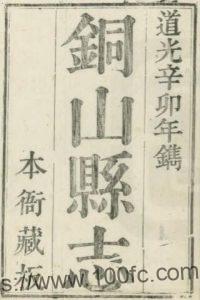 道光辛卯年鐫
銅山縣志
本衙藏板
www.100fc.com